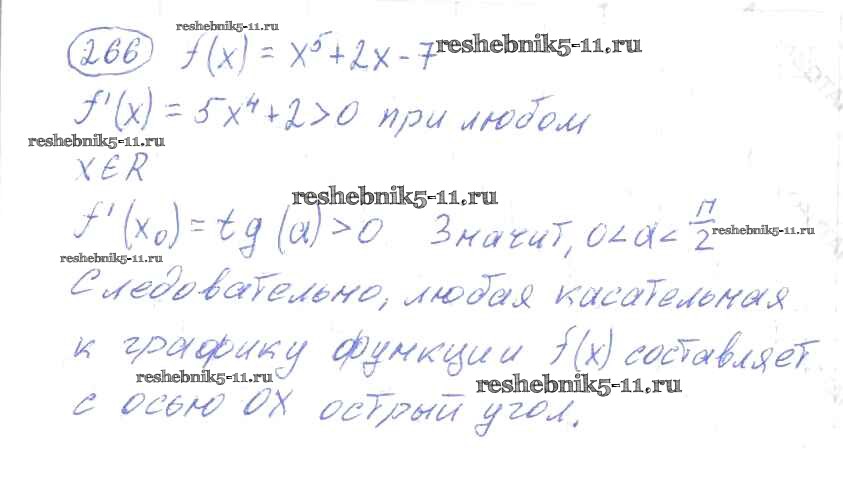 reshebnik5-11.ru
266 f(x) = x⁵+2x-7 reshebnik5-11.ru
f'(x) = 5x⁴+2>0 при любом
reshebnik5-11.ru
x∈R
reshebnik5-11.ru
f'(x₀) = tg(a)>0 Значит, 0<a<π/2 reshebnik5-11.ru
reshebnik5-11.ru
Следовательно, любая касательная
к графику функции f(x) составляет
reshebnik5-11.ru reshebnik5-11.ru
с осью OX острый угол.